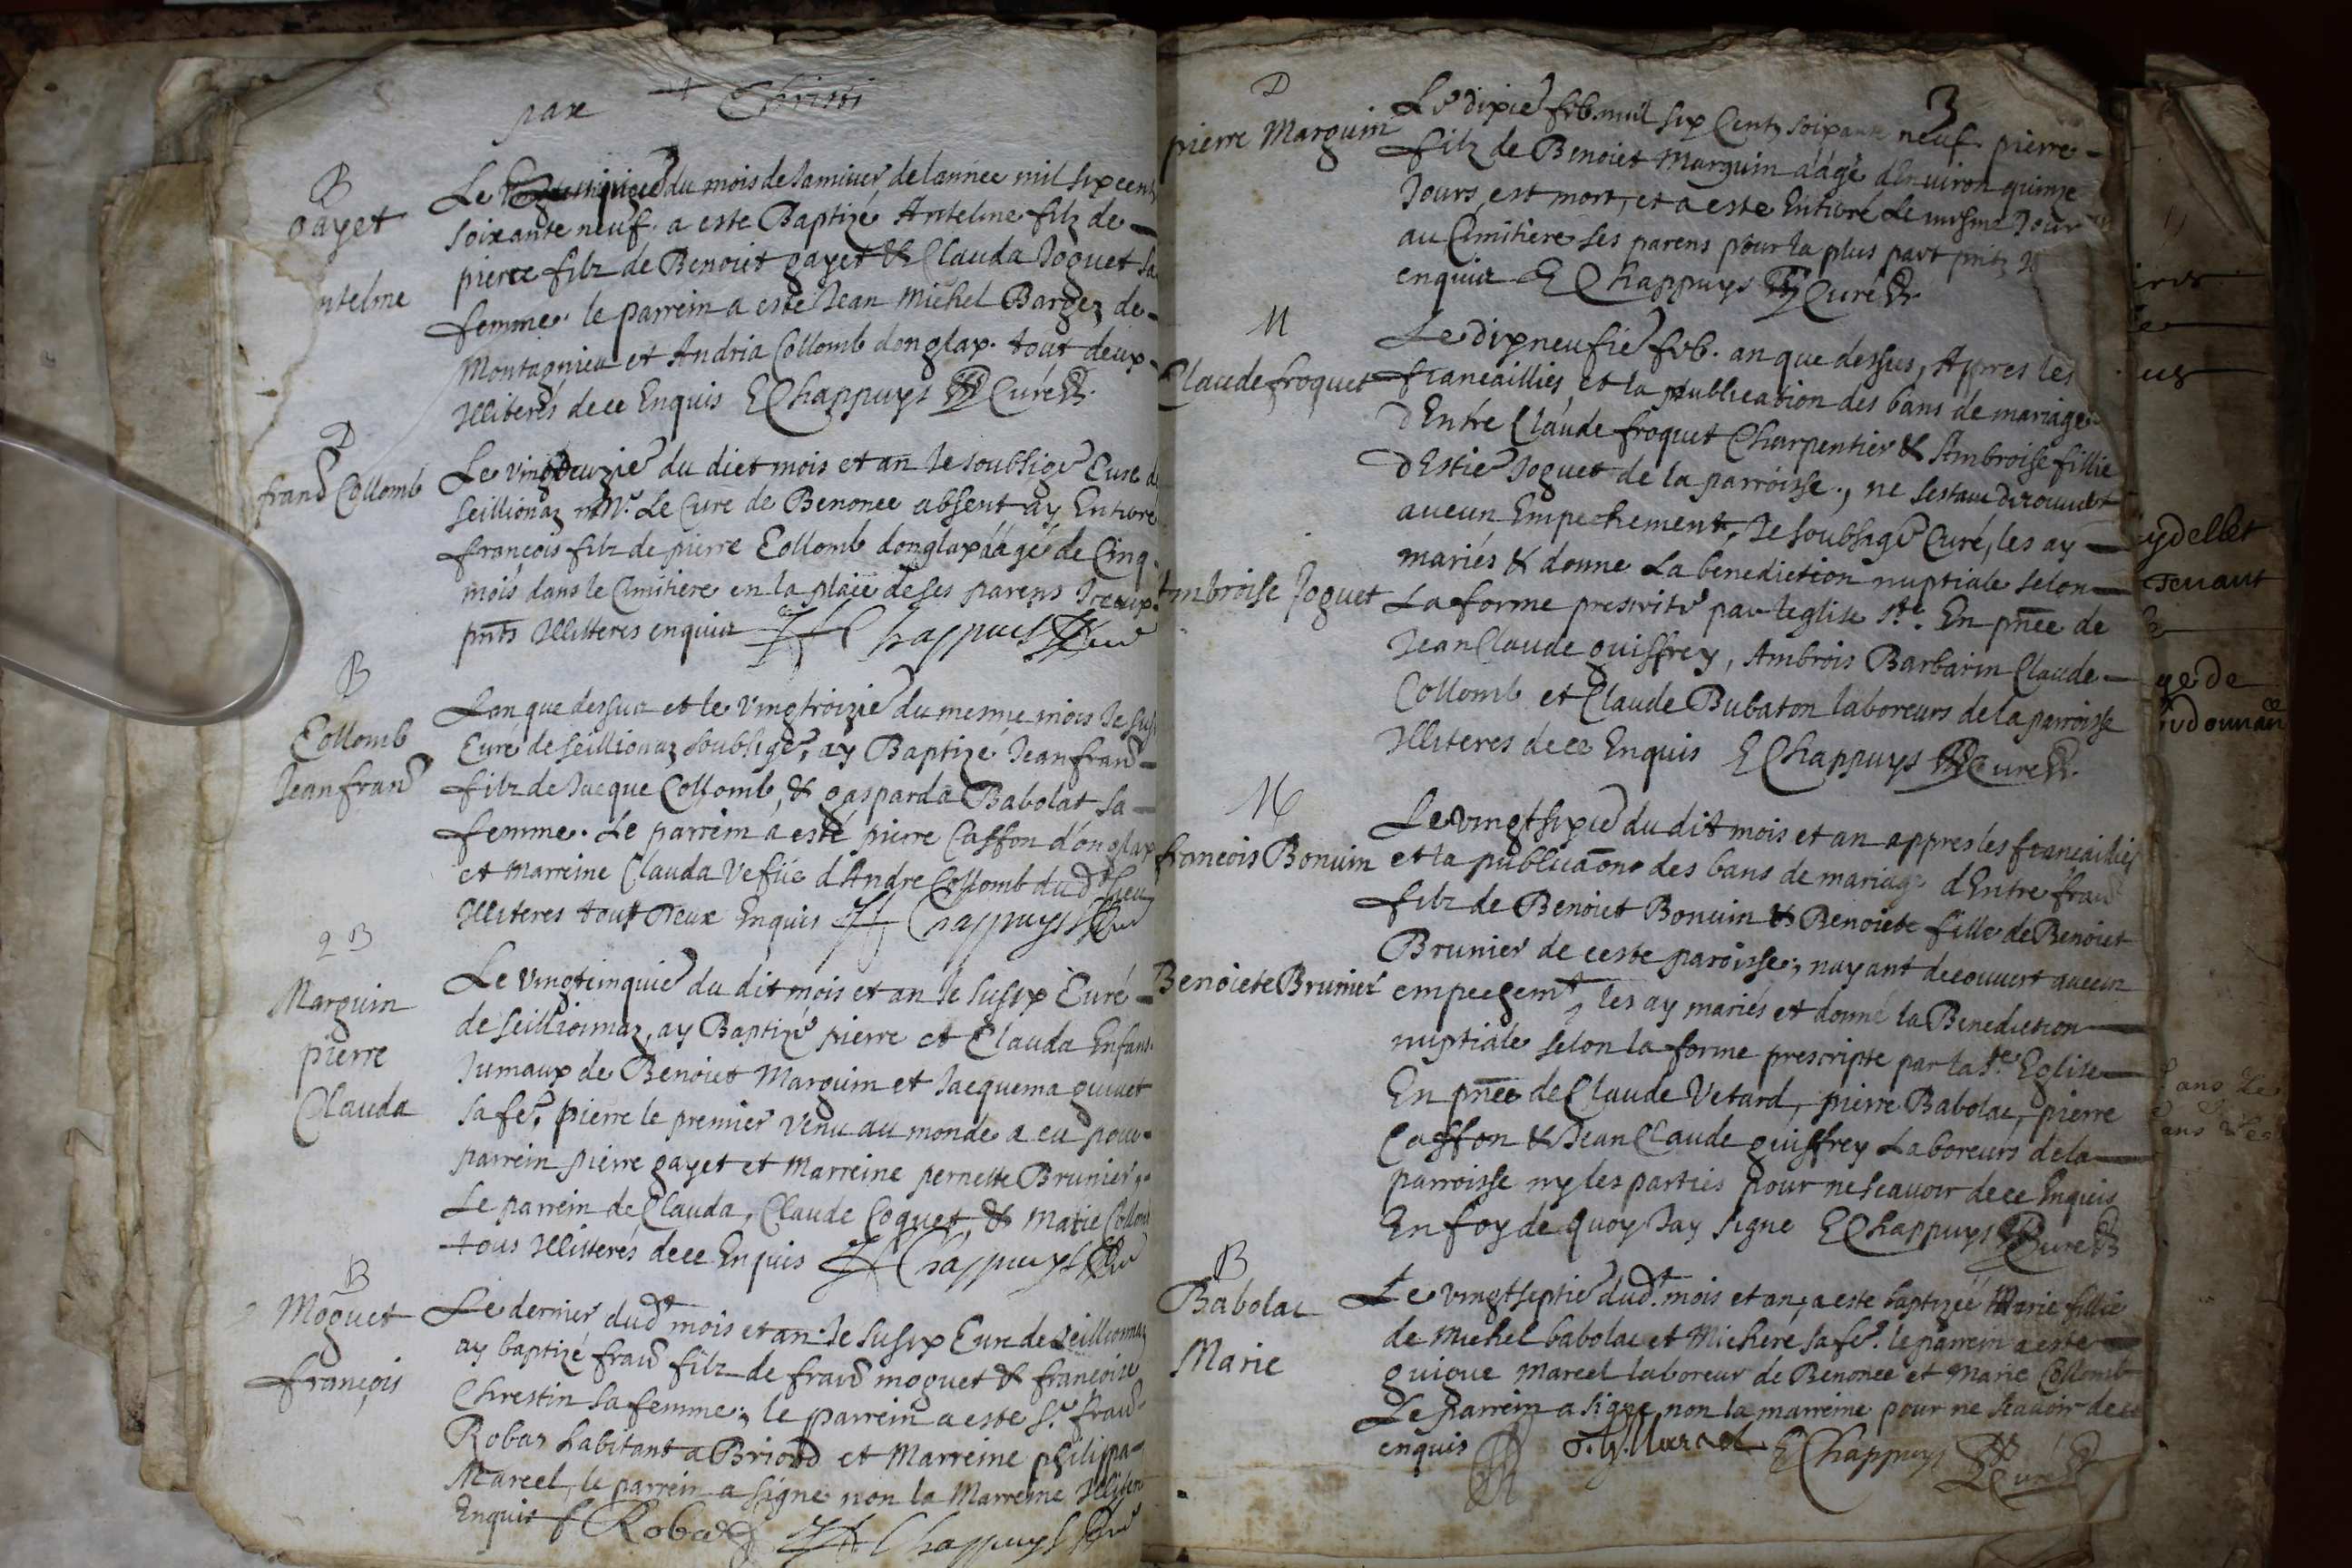 pax Christi
B
gayet
ntelme
Le du mois de Januier de lannee mil six cent
soixante neuf. a este Baptizé Antelme filz de
pierre filz de Benoict gayet & Clauda Joguet sa
femme. le parrein a esté Jean Michel Bargez de
Montagnieu et Andria Collomb donglax. tout deux
Illiterés de ce Enquis EChappuys Curé
D
franc Collomb
Le vingtdeuzie du dict mois et an Je soubsigé Cure de
seillionaz Mr. Le Cure de Benonce absent ay Enterré
françois filz de pierre Collomb donglax áágé de Cinq
mois dans le Cimitiere en la place de ses parens Iceux
pnts Illitteres enquis Chappuis
B
Collomb
Jean franc
Lan que dessus et le vingtroizie du mesme mois Je sus
Curé de seillionaz soubsigé, ay Baptizé Jean franc
filz de Jacque Collomb, & gasparda Babolat sa
femme. Le parrein a esté pierre Casson d'onglax
et Marreine Clauda Vefue d'Andre Collomb du dt lieu
Illiteres tout deux Enquis Chappuys
2 B
Marguin
pierre
Clauda
Le vingtcinquie du dit mois et an Je susix Curé
de seillionnaz, ay Baptizé pierre et Clauda Enfans
Jumaux de Benoict Marguin et Jacquema guinet
sa fe. pierre le premier venu au monde a eu pour
parrein pierre gayet et Marreine pernette Brunier
Le parrein de Clauda, Claude Coguet, & Marie Collomb
tous Illitterés de ce Enquis Chappuys
B
Moguet
françois
Le dernier dudt mois et an Je susix Cure de seillionnaz
ay baptizé franc filz de franc moguet & françoise
Chrestin sa femme; le parrein a este sr. franc
Robas habitant a Briord et Marreine philippa
Marcel, le parrein a signe non la Marreine Illitere
Enquis f Robas Chappuys
3
D
pierre Marguin
Le dixie feb. mil six Cent, soixante neuf. pierre
filz de Benoict Marguin áágé d'Enuiron quinze
Jours, est mort, et a este Enterré Le mesme Jour
au Cimitiere ses parens pour la plus part pnts
enquis EChappuys Curé
M
Claude froquet
Ambroise Joguet
Le dixneufie feb. an que dessus, Appres les
fiancaillies, et la publication des bans de mariage
d'Entre Claude froquet Charpentier & Ambroise fillie
d'Estie Joguet de la parroisse., ne sestant decouuert
aucun Empechement, Je soubsigé Curé, les ay
mariés & donne La benediction nuptiale selon
La forme prescrite par leglise ste. En pnce de
Jean Claude guiffrey, Ambrois Barbarin Claude
Collomb et Claude Bubaton laboreurs de la parroisse
Illiteres de ce Enquis EChappuys Curé
M
francois Bonuin
Benoiete Brunier
Le vingt sixie du dit mois et an appres les fiancaillies
et la publicaon des bans de mariage d'Entre franc
filz de Benoict Bonuin & Benoicte fille de Benoict
Brunier de ceste paroisse; nayant decouuert aucun
empecgemt, les ay mariés et donné la Benediction
nuptiale selon la forme prescripte par la ste Eglise
En pnce de Claude Vetard, pierre Babolac, pierre
Casson & Jean Claude guiffrey Laboreurs de la
parroisse ny les parties pour ne scauoir de ce Enquis
En foy de quoy Jay signe EChappuys Curé
B
Babolac
Marie
Le vingtseptie dudt. mois et an, a este baptizée Marie fillie
de Michel babolac et Michere sa fe. le parrein a este
guigue Marcel laboreur de Benonce et Marie Collomb
Le parrein a signe non la marreine pour ne scauoir de ce
enquis Marcel EChappuys Curé
ydellet
Tenant
ge de